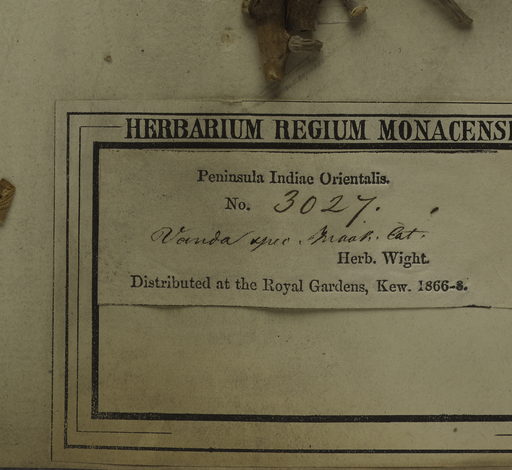 HERBARIUM REGIUM MONACENS
Peninsula Indiae Orientalis.
No. 3027.
Vanda spec. Cat.
Herb. Wight.
Distributed at the Royal Gardens, Kew. 1866-8.